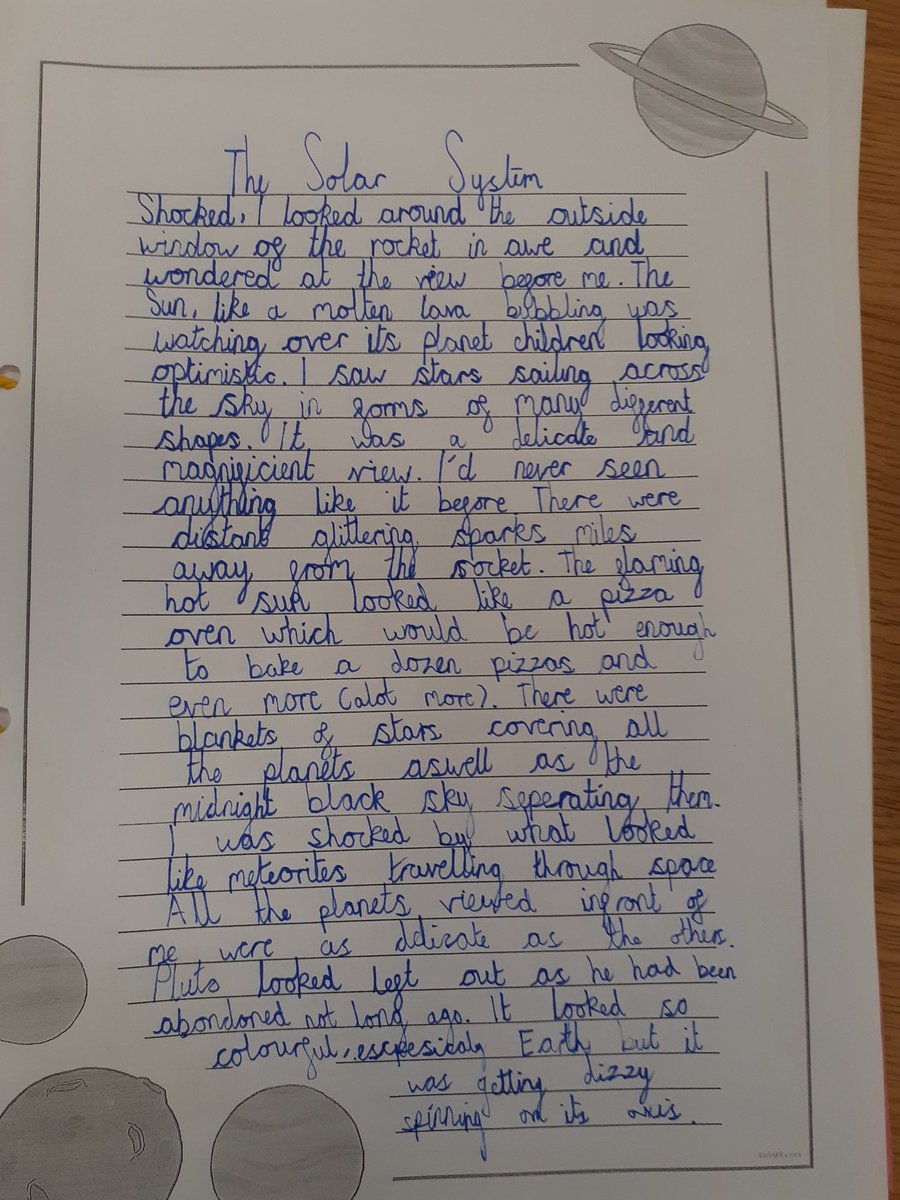 The Solar System
Shocked, I looked around the outside
window of the rocket in awe and
wondered at the view before me. The
Sun, like a molten lava bubbling was
watching over its planet children looking
optimistic. I saw stars sailing across
the sky in forms of many different
shapes. It was a delicate and
magnificient view. I'd never seen
anything like it before. There were
distant glittering sparks miles
away from the socket. The flaming
hot sun looked like a pizza
oven which would be hot enough
to bake a dozen pizzas and
even more (alot more). There were
blankets of stars covering all
the planets aswell as the
midnight black sky seperating them.
I was shocked by what looked
like meteorites travelling through space
All the planets viewed infront of
me were as delicate as the others.
Pluto looked left out as he had been
abondoned not long ago. It looked so
colourful, Earth but it
was getting dizzy
spinning on its axis.